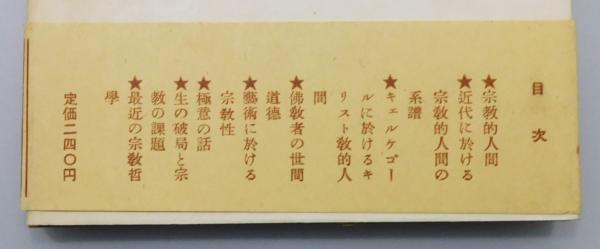 目次
★宗教的人間
★近代に於ける
宗教的人間の
系譜
★キェルケゴー
ルに於けるキ
リスト教的人
間
★佛教者の世間
道德
★藝術に於ける
宗教性
★極意の話
★生の破局と宗
教の課題
★最近の宗教哲
學
定価二四〇円